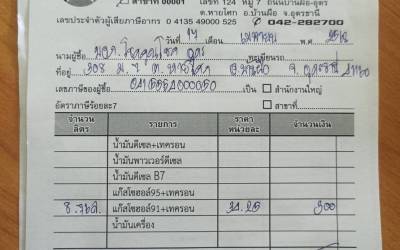 สาขาที่ 00001 เลขที่ 124 หมู่ 7 ถนนบ้านผือ-อุดร
ต.หายโศก อ.บ้านผือ จ.อุดรธานี
เลขประจำตัวผู้เสียภาษีอากร 0 4135 49000 525 042-282700
วันที่ 17 เดือน เมษายน พ.ศ.
นามผู้ซื้อ ทะเบียนรถ
ที่อยู่ 308 ม.7 ต. อ.บ้านผือ จ.อุดรธานี 41160
เลขภาษีของผู้ซื้อ เป็น สำนักงานใหญ่
อัตราภาษีร้อยละ7 สาขาที่
จำนวนลิตร รายการ ราคาหน่วยละ จำนวนเงิน
น้ำมันดีเซล+เทครอน
น้ำมันพาวเวอร์ดีเซล
น้ำมันดีเซล B7
แก๊สโซฮอล์95+เทครอน
แก๊สโซฮอล์91+เทครอน 34.25 300
น้ำมันเครื่อง